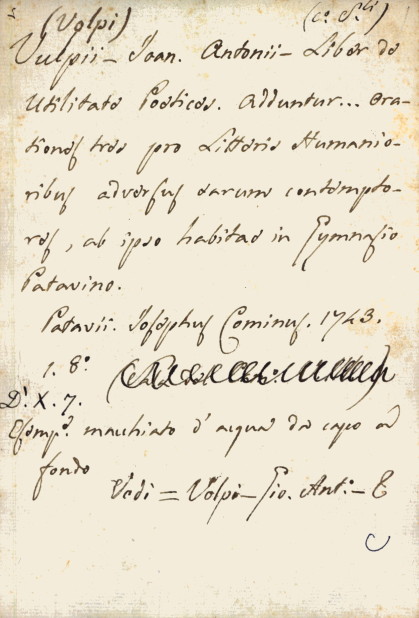 (Volpi) (c. S.ti)
Vulpii - Joan. Antonii - Liber de
Utilitate Poëtices. Adduntur... Ora-
tiones tres pro Litteris Humanio-
ribus adversus earum contempto-
res, ab ipso habitae in Gymnasio
Patavino.
Patavii. Josephus Cominus. 1743.
1. 8.°
D. X. 7.
Esemp.e macchiato d'acqua da capo a
fondo
Vedi = Volpi - Gio. Ant.° - E
C